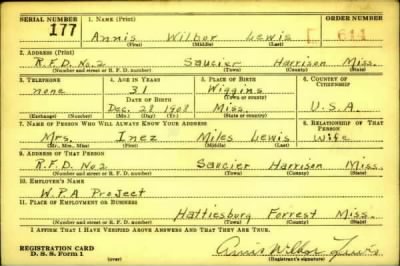 SERIAL NUMBER 1. NAME (Print) ORDER NUMBER
177 Annis Wilbor Lewis 611
(First) (Middle) (Last)
2. ADDRESS (Print)
R.F.D. No. 2 Saucier Harrison Miss.
(Number and street or R. F. D. number) (Town) (County) (State)
3. TELEPHONE 4. AGE IN YEARS 5. PLACE OF BIRTH 6. COUNTRY OF CITIZENSHIP
none 31 Wiggins
DATE OF BIRTH (Town or county)
Dec. 28 1908 Miss. U.S.A.
(Exchange) (Number) (Mo.) (Day) (Yr.) (State or country)
7. NAME OF PERSON WHO WILL ALWAYS KNOW YOUR ADDRESS 8. RELATIONSHIP OF THAT PERSON
Mrs. Inez Miles Lewis Wife
(Mr., Mrs., Miss) (First) (Middle) (Last)
9. ADDRESS OF THAT PERSON
R.F.D. No 2 Saucier Harrison Miss.
(Number and street or R. F. D. number) (Town) (County) (State)
10. EMPLOYER'S NAME
W.P.A Project
11. PLACE OF EMPLOYMENT OR BUSINESS
Hattiesburg Forrest Miss.
(Number and street or R. F. D. number) (Town) (County) (State)
I AFFIRM THAT I HAVE VERIFIED ABOVE ANSWERS AND THAT THEY ARE TRUE.
REGISTRATION CARD Annis Wilbor Lewis
D. S. S. Form 1 (over) (Registrant's signature)